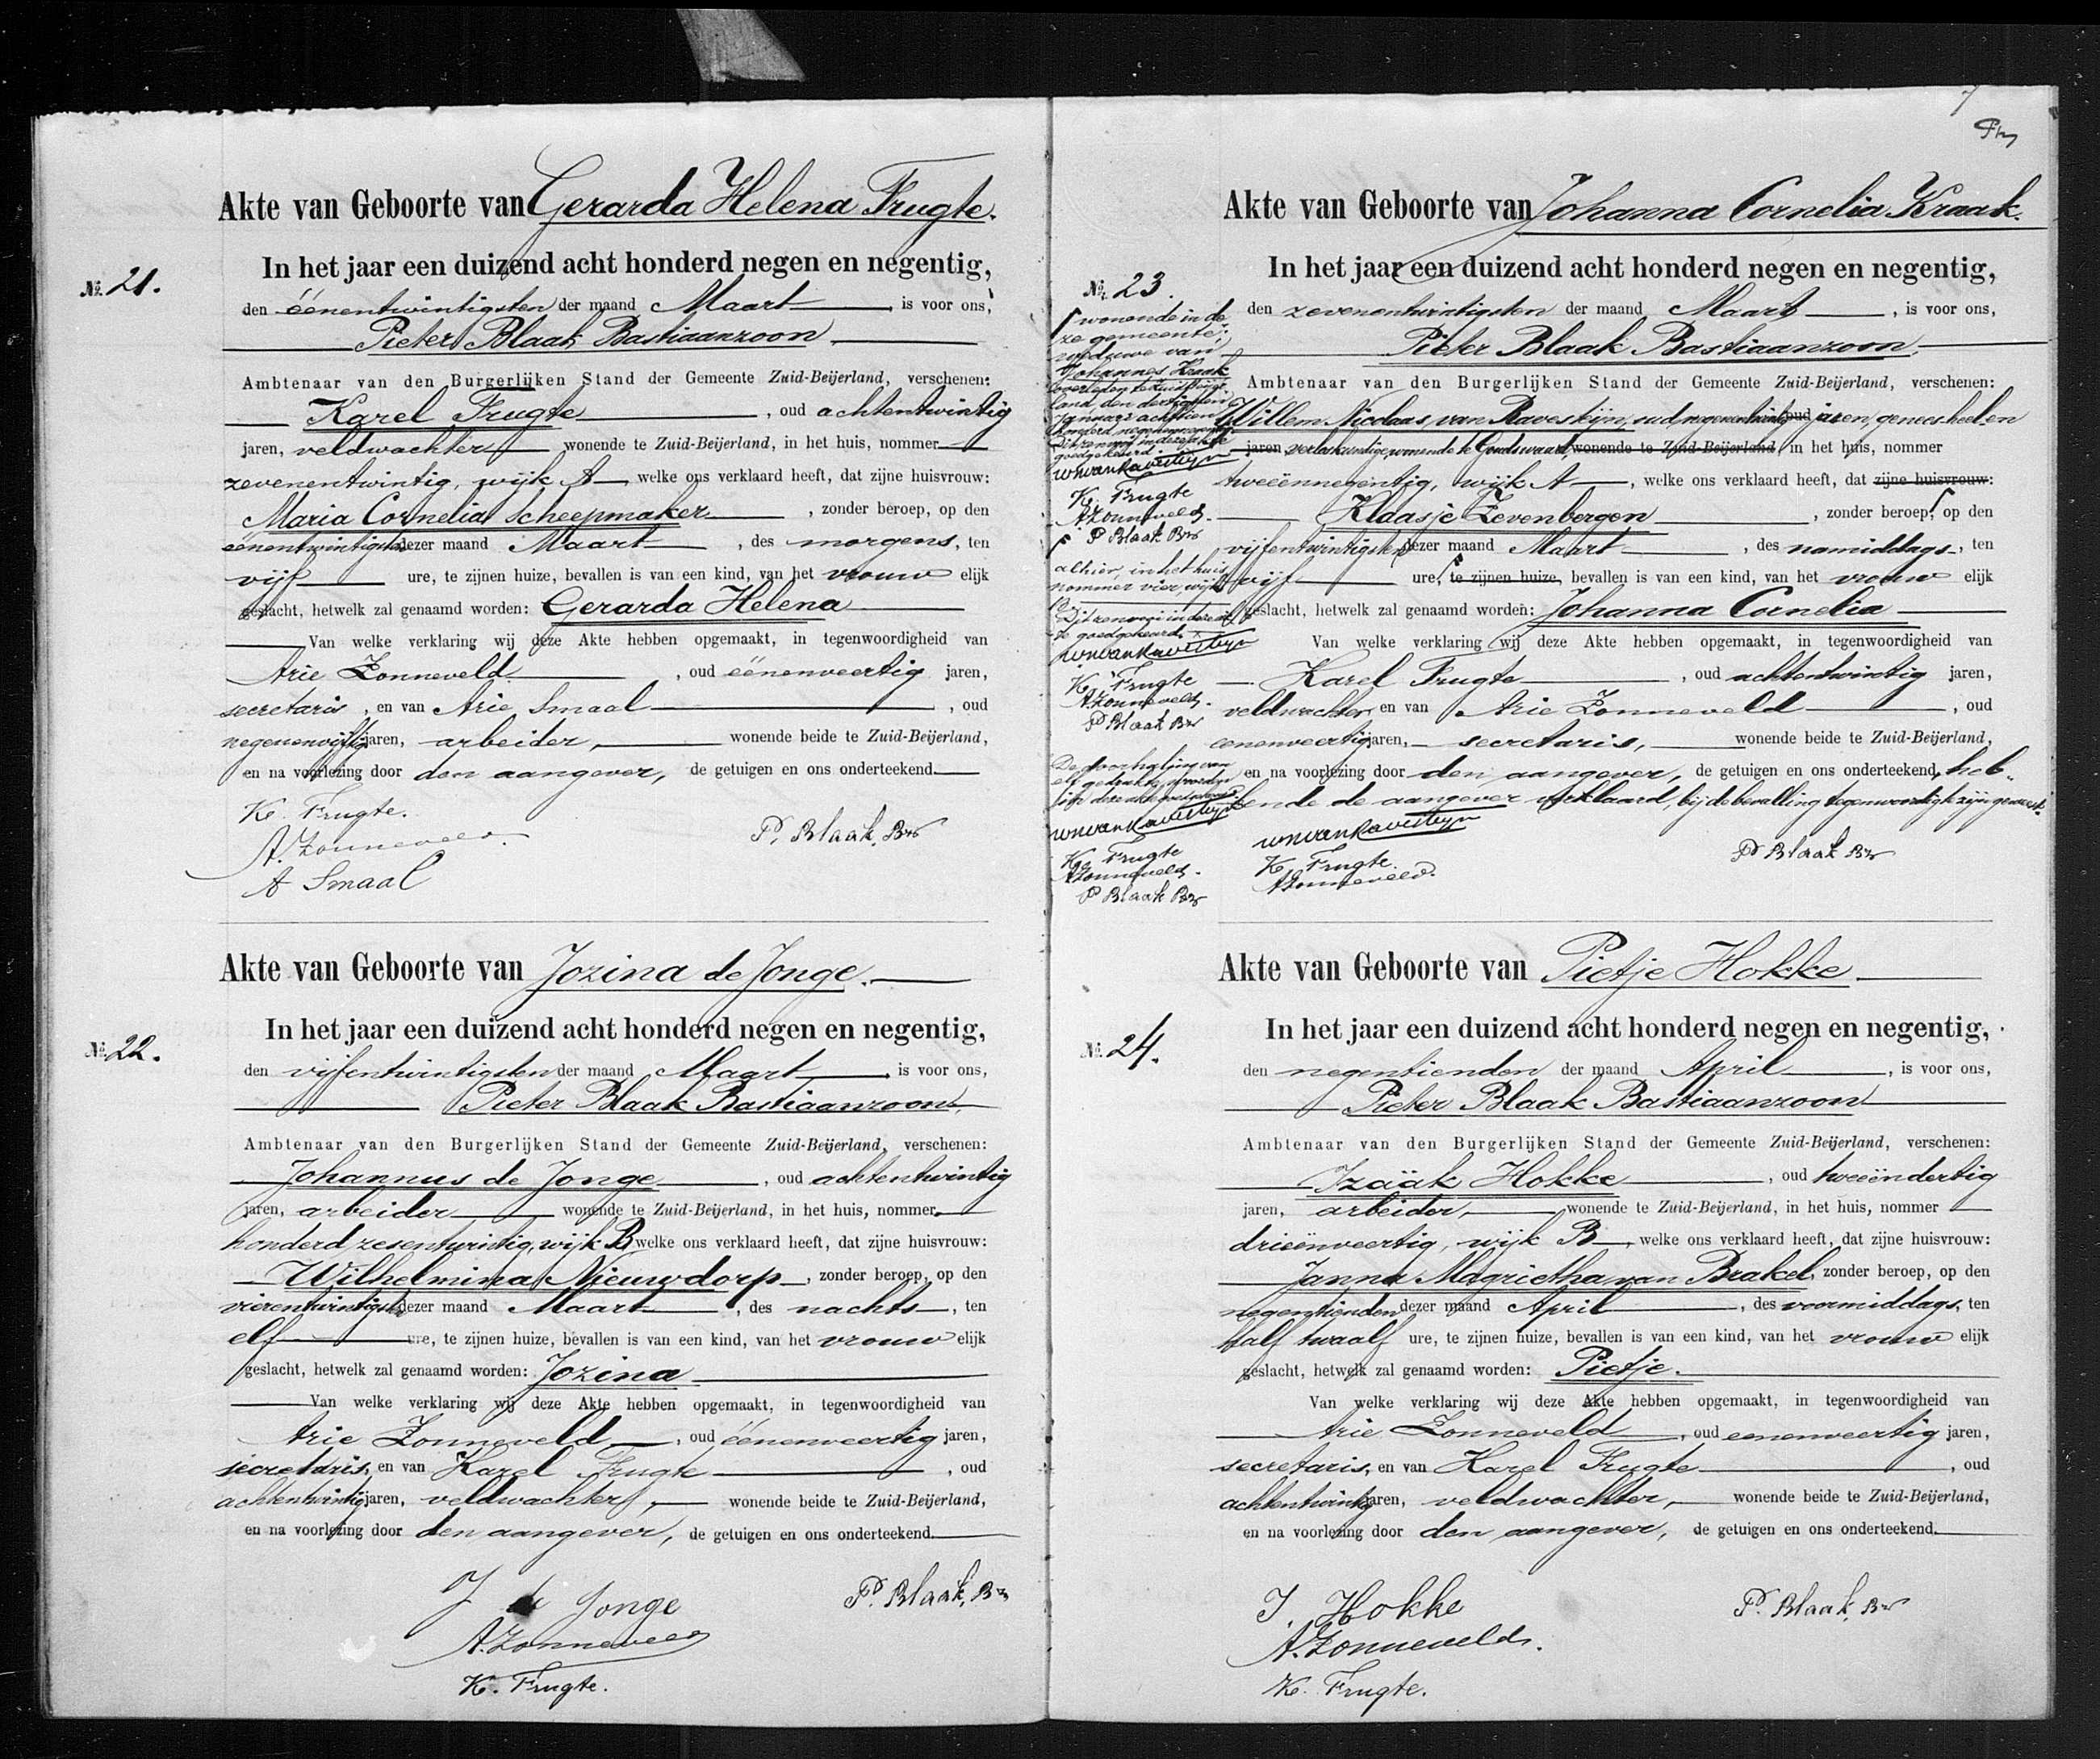 Akte van Geboorte van Gerarda Helena Frugte.
№ 21.
In het jaar een duizend acht honderd negen en negentig,
den éénentwintigsten der maand Maart, is voor ons,
Pieter Blaak Bastiaanzoon,
Ambtenaar van den Burgerlijken Stand der Gemeente Zuid-Beijerland, verschenen:
Karel Frugte, oud achtentwintig
jaren, veldwachter wonende te Zuid-Beijerland, in het huis, nommer
zevenentwintig, wijk A welke ons verklaard heeft, dat zijne huisvrouw:
Maria Cornelia Scheepmaker, zonder beroep, op den
éénentwintigsten dezer maand Maart, des morgens, ten
vijf ure, te zijnen huize, bevallen is van een kind, van het vrouw elijk
geslacht, hetwelk zal genaamd worden: Gerarda Helena
Van welke verklaring wij deze Akte hebben opgemaakt, in tegenwoordigheid van
Arie Zonneveld, oud éénenveertig jaren,
secretaris, en van Arie Smaal, oud
negenenvijftig jaren, arbeider, wonende beide te Zuid-Beijerland,
en na voorlezing door den aangever, de getuigen en ons onderteekend.
K. Frugte.
A. Zonneveld.
P. Blaak, Bz
A Smaal
Akte van Geboorte van Jozina de Jonge.
№ 22.
In het jaar een duizend acht honderd negen en negentig,
den vijfentwintigsten der maand Maart, is voor ons,
Pieter Blaak Bastiaanzoon,
Ambtenaar van den Burgerlijken Stand der Gemeente Zuid-Beijerland, verschenen:
Johannus de Jonge, oud achtentwintig
jaren, arbeider wonende te Zuid-Beijerland, in het huis, nommer
honderd zesentwintig, wijk B welke ons verklaard heeft, dat zijne huisvrouw:
Wilhelmina Nieuwdorp, zonder beroep, op den
vierentwintigsten dezer maand Maart, des nachts, ten
elf ure, te zijnen huize, bevallen is van een kind, van het vrouw elijk
geslacht, hetwelk zal genaamd worden: Jozina
Van welke verklaring wij deze Akte hebben opgemaakt, in tegenwoordigheid van
Arie Zonneveld, oud éénenveertig jaren,
secretaris, en van Karel Frugte, oud
achtentwintig jaren, veldwachter, wonende beide te Zuid-Beijerland,
en na voorlezing door den aangever, de getuigen en ons onderteekend.
J de Jonge
P. Blaak, Bz
A. Zonneveld
K. Frugte.
Akte van Geboorte van Johanna Cornelia Kraak.
№ 23.
In het jaar een duizend acht honderd negen en negentig,
den zevenentwintigsten der maand Maart, is voor ons,
Pieter Blaak Bastiaanzoon,
Ambtenaar van den Burgerlijken Stand der Gemeente Zuid-Beijerland, verschenen:
Willem Nicolaas van Ravestijn, oud negenentwintig oud jaren, genees-heel-en
jaren, verloskundige, wonende te Goudswaard, wonende te Zuid-Beijerland in het huis, nommer
tweeënnegentig, wijk A, welke ons verklaard heeft, dat zijne huisvrouw:
Klaasje Zevenbergen, zonder beroep, op den
vijfentwintigsten dezer maand Maart, des namiddags, ten
vijf ure, te zijnen huize, bevallen is van een kind, van het vrouw elijk
geslacht, hetwelk zal genaamd worden: Johanna Cornelia
Van welke verklaring wij deze Akte hebben opgemaakt, in tegenwoordigheid van
Karel Frugte, oud achtentwintig jaren,
veldwachter, en van Arie Zonneveld, oud
eenenveertig jaren, secretaris, wonende beide te Zuid-Beijerland,
en na voorlezing door den aangever, de getuigen en ons onderteekend, heb-
bende de aangever verklaard, bij de bevalling tegenwoordig te zijn geweest.
WN van Ravestijn
K. Frugte.
A. Zonneveld.
P Blaak Bz
wonende in de
ze gemeente,
weduwe van
Johannes Kraak
overleden te Zuid-Beijer-
land, den dertigsten
Januari achttien
honderd negenennegentig
Dit renvooi in deze akte
goedgekeurd.
WN van Ravestijn
K. Frugte
A Zonneveld.
P Blaak Bz
alhier, in het huis
nommer vier, wijk
Dit renvooi in deze ak-
te goedgekeurd.
WN van Ravestijn
K. Frugte
A Zonneveld.
P Blaak Bz
De doorhaling van
elf gedrukte woorden
in deze akte goedgekeurd.
WN van Ravestijn
K. Frugte
A Zonneveld.
P Blaak Bz
Akte van Geboorte van Pietje Hokke
№ 24.
In het jaar een duizend acht honderd negen en negentig,
den negentienden der maand April, is voor ons,
Pieter Blaak Bastiaanzoon
Ambtenaar van den Burgerlijken Stand der Gemeente Zuid-Beijerland, verschenen:
Izaäk Hokke, oud tweeëndertig
jaren, arbeider, wonende te Zuid-Beijerland, in het huis, nommer
drieënveertig, wijk B, welke ons verklaard heeft, dat zijne huisvrouw:
Janna Magrietha van Brakel, zonder beroep, op den
negentienden dezer maand April, des voormiddags, ten
half twaalf ure, te zijnen huize, bevallen is van een kind, van het vrouw elijk
geslacht, hetwelk zal genaamd worden: Pietje.
Van welke verklaring wij deze Akte hebben opgemaakt, in tegenwoordigheid van
Arie Zonneveld, oud eenenveertig jaren,
secretaris, en van Karel Frugte, oud
achtentwintig jaren, veldwachter, wonende beide te Zuid-Beijerland,
en na voorlezing door den aangever, de getuigen en ons onderteekend.
I. Hokke
P. Blaak, Bz
A. Zonneveld.
K. Frugte.